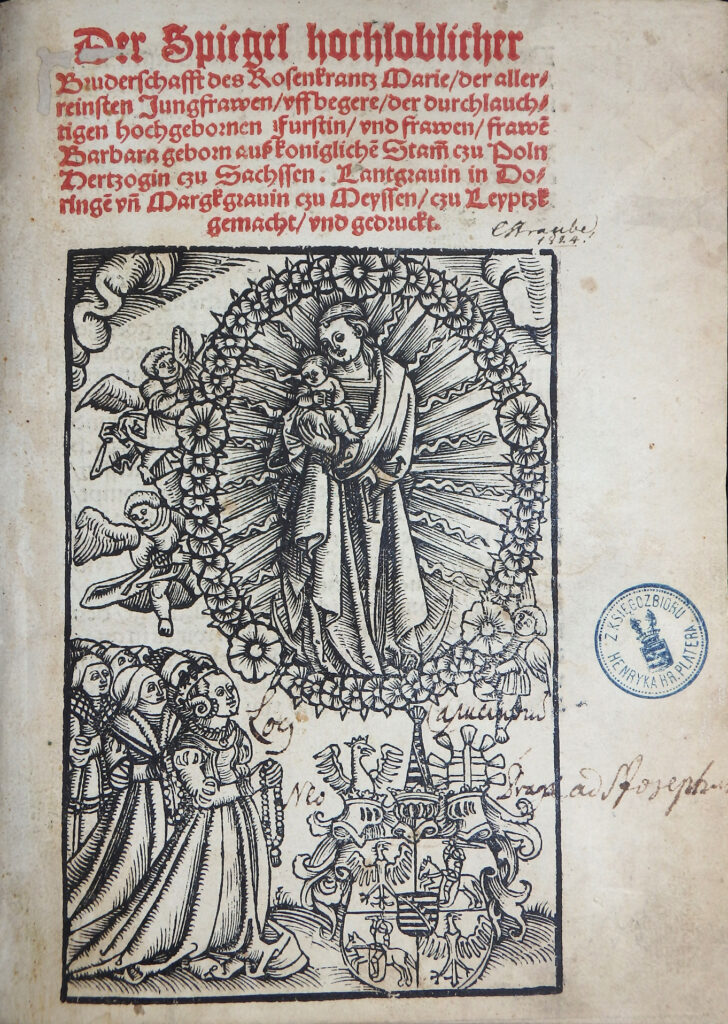 Der Spiegel hochloblicher
Bruderschafft des Rosenkrantz Marie/der aller⸗
reinsten Jungfrawen/vffbegere/der durchlauch⸗
tigen hochgebornen Furstin/vnd frawen/frawē
Barbara geborn auß koniglichē Stam̄ czu Poln
Hertzogin czu Sachssen. Lantgrauin in Do⸗
ringē vn̄ Margkgrauin czu Meyssen/czu Leyptzk
gemacht/vnd gedruckt.
CStraube
Z KSIĘGOZBIORU
HENRYKA HR. PLATERA
Neo Pragæ ad S Joseph